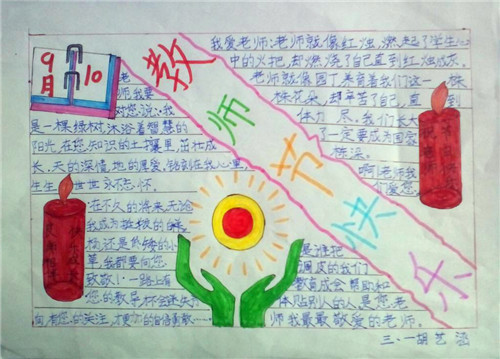 9月10
教师节快乐
我爱老师:老师就像红烛,燃起了学生心
中的火把,却燃烧了自己直到红烛成灰。
老师就像园丁,美育着我们这一株
株花朵,却辛苦了自己,直到
体力尽。我们长大
了一定要成为国家
栋梁。
啊!老师我
们爱您。
老
师我要
对您说:我
是一棵绿树,沐浴着智慧的
阳光,在您知识的土壤里,茁壮成
长,天的深情,地的厚爱,铭刻在我心里,
生生世世永不忘怀。
在不久的将来无论
我成为挺拔的
还是矮的小
草我都要向您
致敬!一路上有
您的教导,才会迷失
向有您的关注,才更加的自信勇敢……
是谁把
调皮的我们
教育成会帮助和
体贴别人的人是您老
师我最最敬爱的老师。
三.一胡艺涵